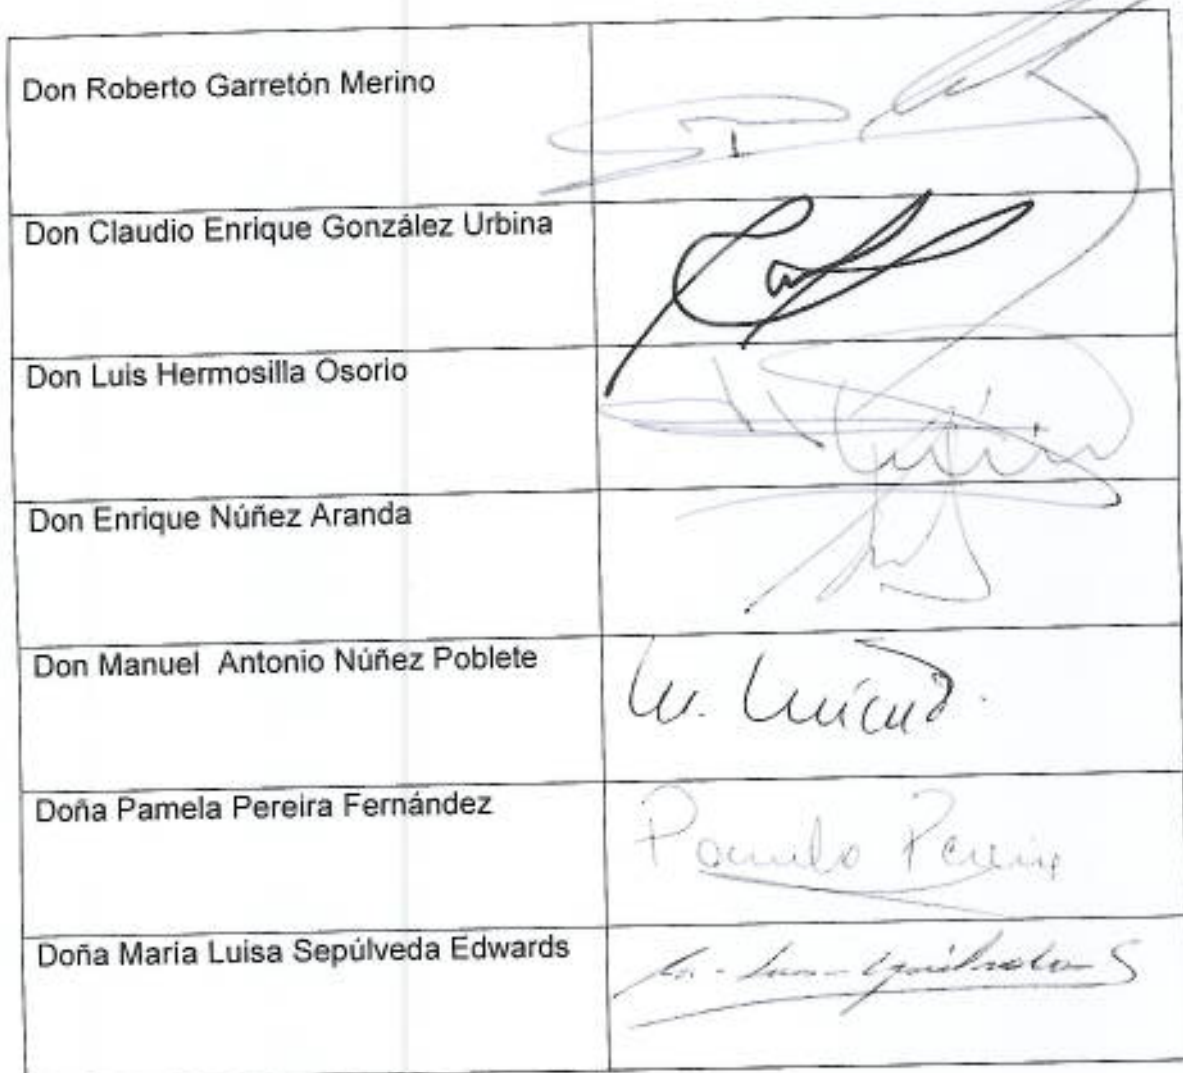 Don Roberto Garretón Merino
Don Claudio Enrique González Urbina
Don Luis Hermosilla Osorio
Don Enrique Núñez Aranda
Don Manuel Antonio Núñez Poblete
Doña Pamela Pereira Fernández
Pamela Pereira
Doña María Luisa Sepúlveda Edwards